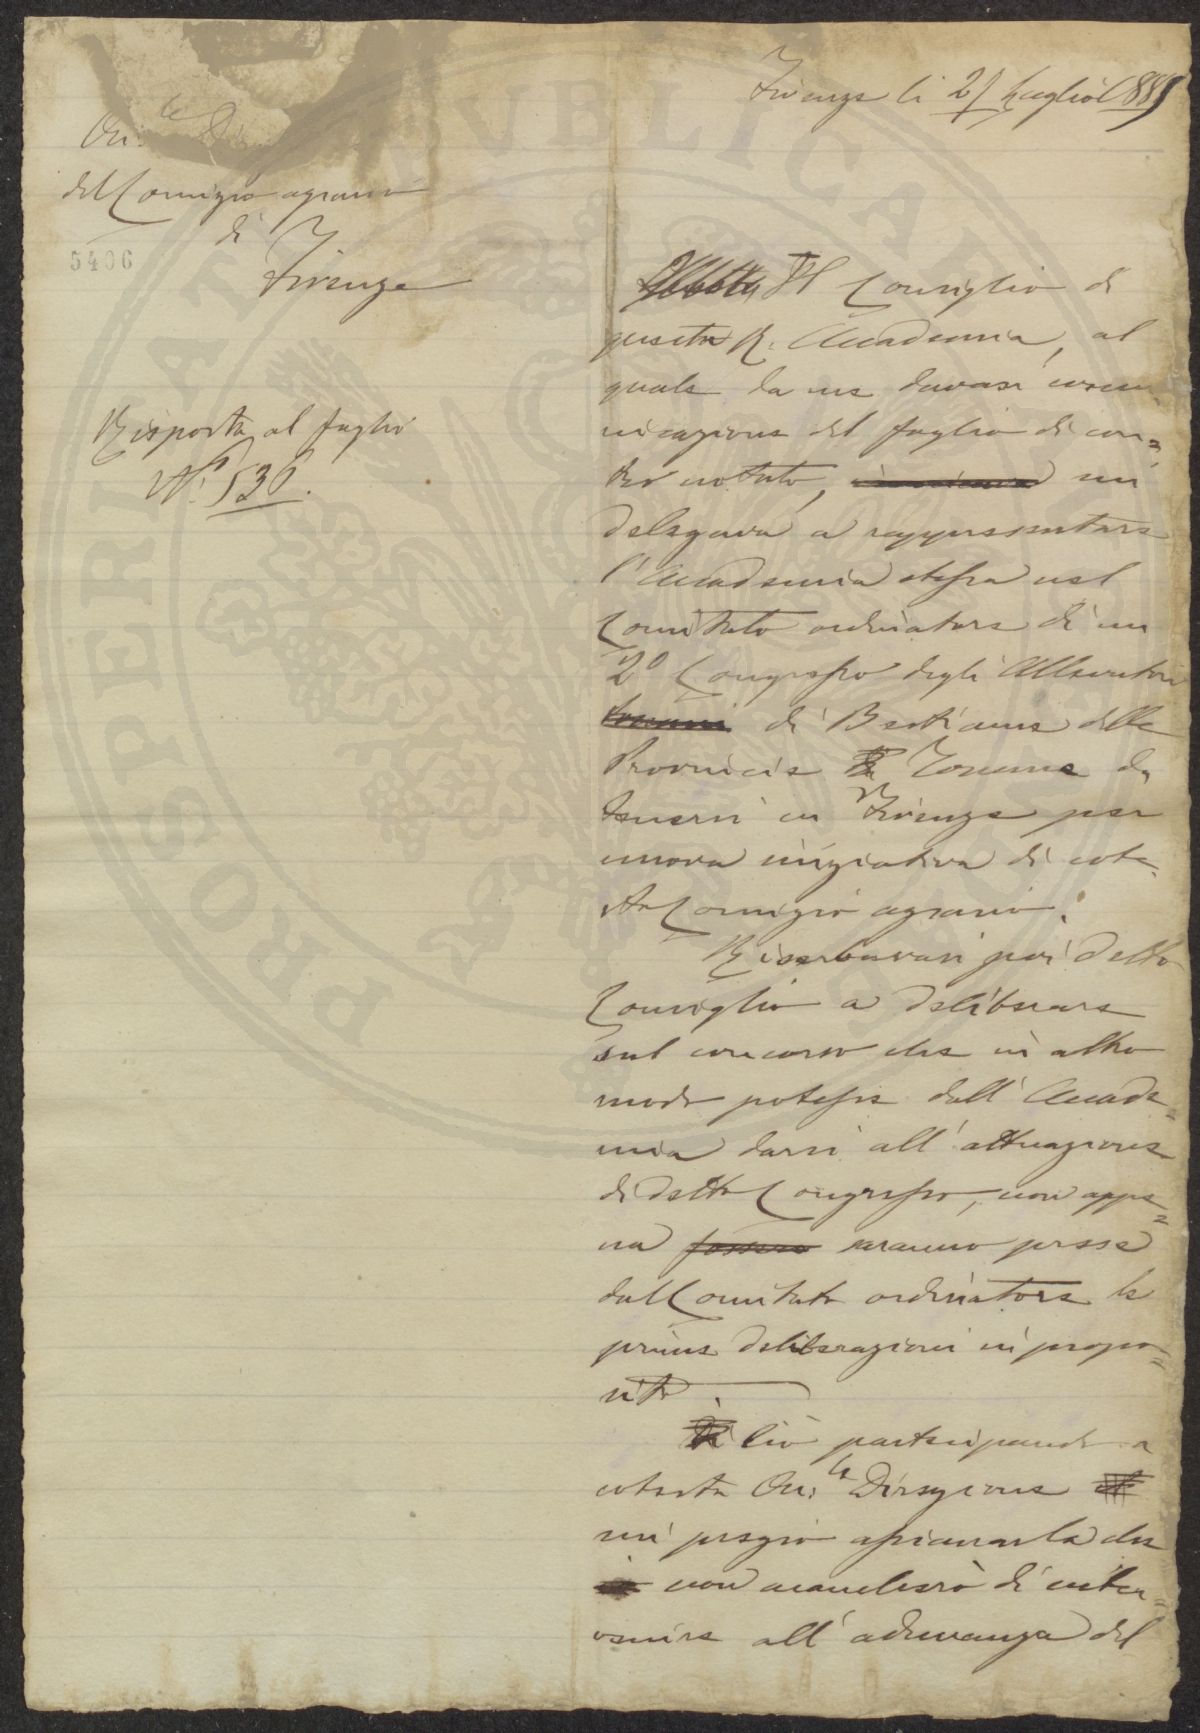 Firenze li 27 Luglio 1885
On: le Di
del Comizio agrario
di
Firenze
5406
Risposta al foglio
N.° 536.
Il Consiglio di
questa R. Accademia, al
quale da me davasi comu
nicazione del foglio di con=
tro notato, mi
delegava a rappresentare
l'Accademia stessa nel
Comitato ordinatore di un
2° Congresso degli Allevatori
toscani di Bestiame delle
Provincie Toscane da
tenersi in Firenze per
nuova iniziativa di cote
sto Comizio agrario.
Riserbavasi poi detto
Consiglio a deliberare
sul concorso che in altro
modo potesse dall'Accade=
mia darsi all'attuazione
di detto Congresso, non appe=
na fossero saranno prese
dal Comitato ordinatore le
prime deliberazioni in propo=
sito.
Ciò partecipando a
cotesta On: le Direzione
mi pregio assicurarla che
non mancherò di inter=
venire all'adunanza del
PROSPERITATI PUBLICAE AUGENDAE